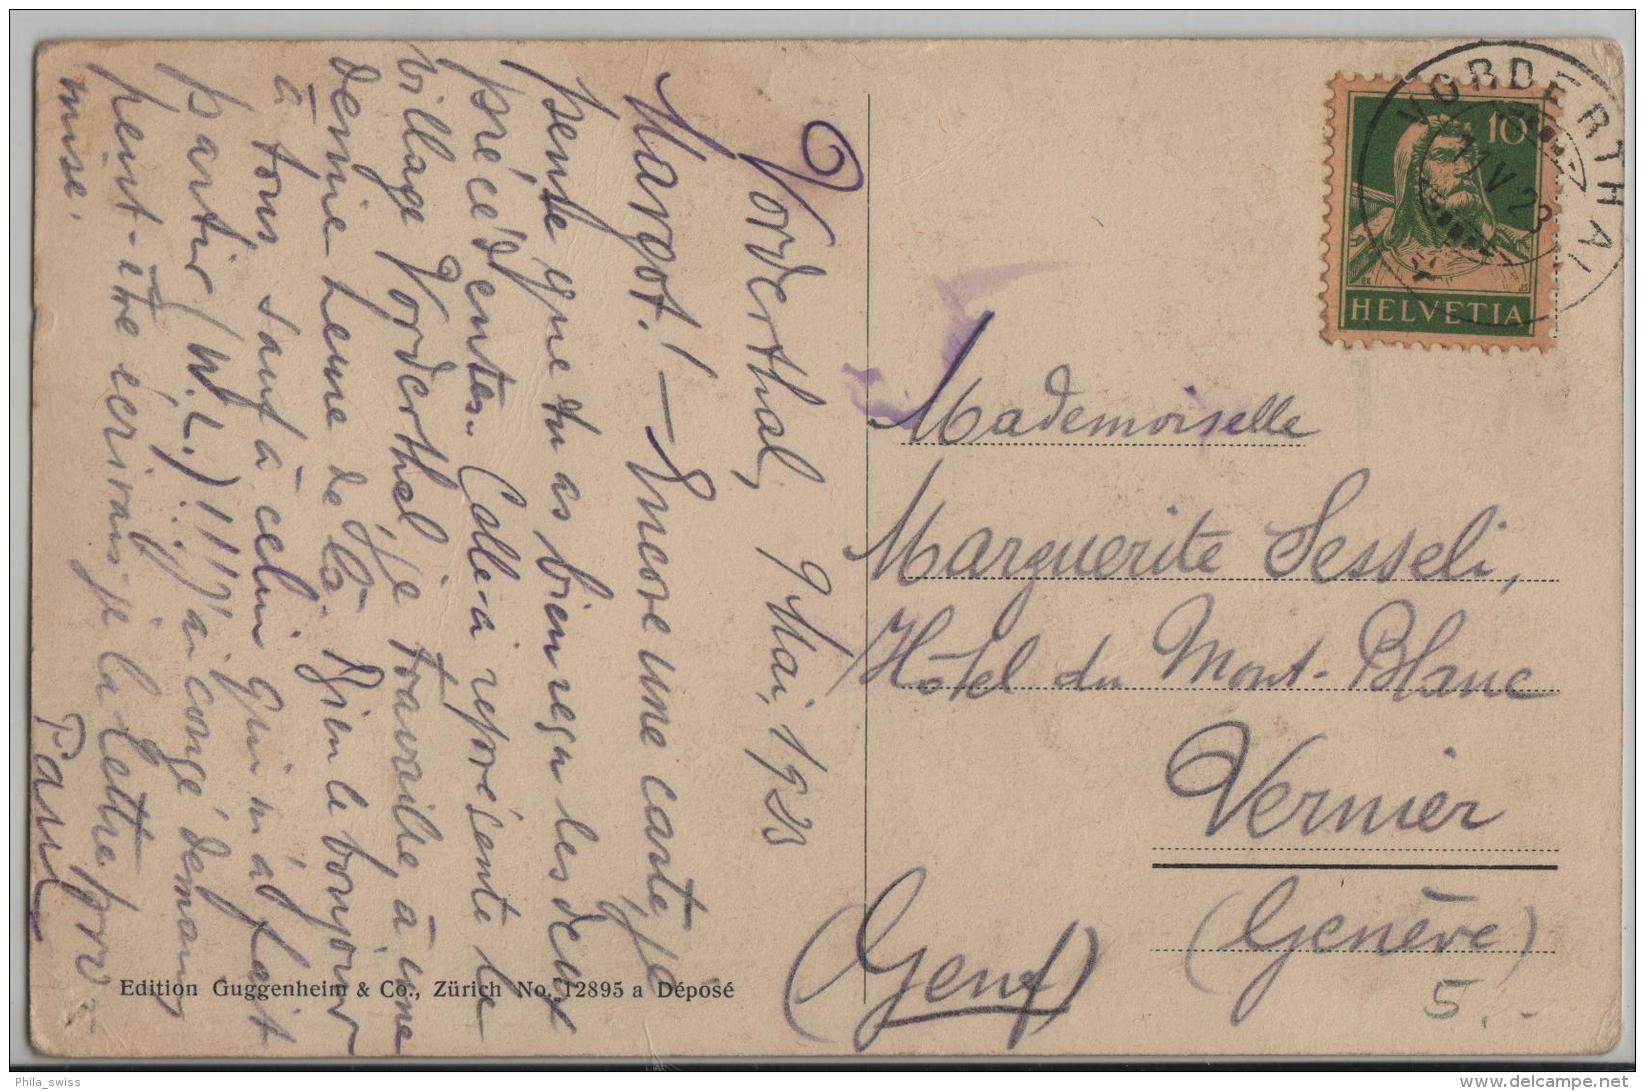 Vorderthal, 9 Mai, 1923
Margot! — Encore une carte, je
pense que tu as bien reçu les deux
précédentes. Celle-ci représente le
village Vorderthal, je travaille, à une
demie heure de là. Bien le bonjour
à tous, sauf à celui qui m'a fait
partir (W. L.) !!!! J'ai congé demain
peut-être écrirais-je la lettre pro-
mise.
Paul
Edition Guggenheim & Co., Zürich No. 12895 a Déposé
VORDERTHAL
11 V 23
10
HELVETIA
Mademoiselle
Marguerite Sesseli,
Hôtel du Mont-Blanc
Vernier
(Genève)
(Genf)
5.-
Phila_swiss
www.delcampe.net